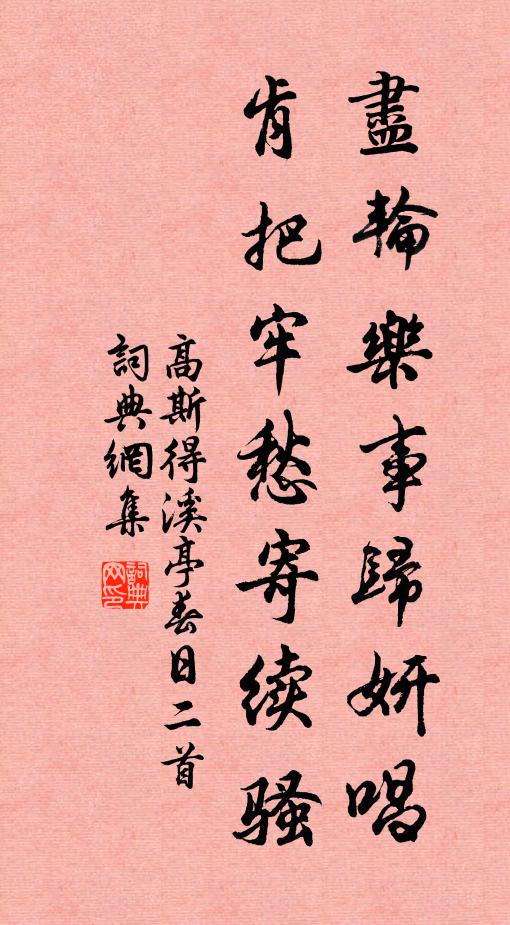 盡輪樂事歸妍唱
肯把牢愁寄续骚
高斯得溪亭春日二首
詞典網集
詞典網印